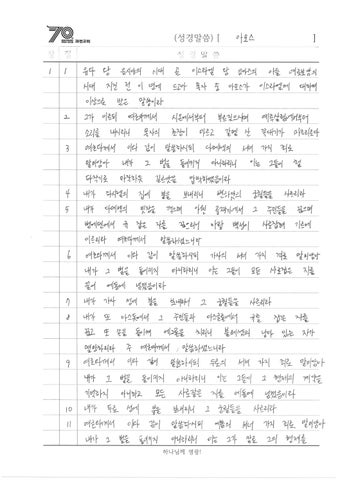 70 과천교회 (성경말씀) [ 아모스 ]
장 절 성 경 말 씀
1 1 유다 왕 웃시야의 시대 곧 이스라엘 왕 요아스의 아들 여로보암의
시대 지진 전 이년에 드고아 목자 중 아모스가 이스라엘에 대하여
이상으로 받은 말씀이라
2 그가 이르되 여호와께서 시온에서부터 부르짖으시며 예루살렘에서부터
소리를 내시리니 목자의 초장이 마르고 갈멜 산 꼭대기가 마르리로다
3 여호와께서 이와 같이 말씀하시되 다메섹의 서너 가지 죄로
말미암아 내가 그 벌을 돌이키지 아니하리니 이는 그들이 철
타작기로 타작하듯 길르앗을 압박하였음이라
4 내가 하사엘의 집에 불을 보내리니 벤하닷의 궁궐들을 사르리라
5 내가 다메섹의 빗장을 꺾으며 아웬 골짜기에서 그 주민들을 끊으며
벧에덴에서 규 잡은 자를 끊으리니 아람 백성이 사로잡혀 기르에
이르리라 여호와께서 말씀하셨느니라
6 여호와께서 이와 같이 말씀하시되 가사의 서너 가지 죄로 말미암아
내가 그 벌을 돌이키지 아니하리니 이는 그들이 모든 사로잡은 자를
끌어 에돔에 넘겼음이라
7 내가 가사 성에 불을 보내리니 그 궁궐들을 사르리라
8 내가 또 아스돗에서 그 주민들과 아스글론에서 규를 잡은 자를
끊고 또 손을 돌이켜 에그론을 치리니 블레셋의 남아 있는 자가
멸망하리라 주 여호와께서 말씀하셨느니라
9 여호와께서 이와 같이 말씀하시되 두로의 서너 가지 죄로 말미암아
내가 그 벌을 돌이키지 아니하리니 이는 그들이 그 형제의 계약을
기억하지 아니하고 모든 사로잡은 자를 에돔에 넘겼음이라
10 내가 두로 성에 불을 보내리니 그 궁궐들을 사르리라
11 여호와께서 이와 같이 말씀하시되 에돔의 서너 가지 죄로 말미암아
내가 그 벌을 돌이키지 아니하리니 이는 그가 칼로 그의 형제를
하나님께 영광!